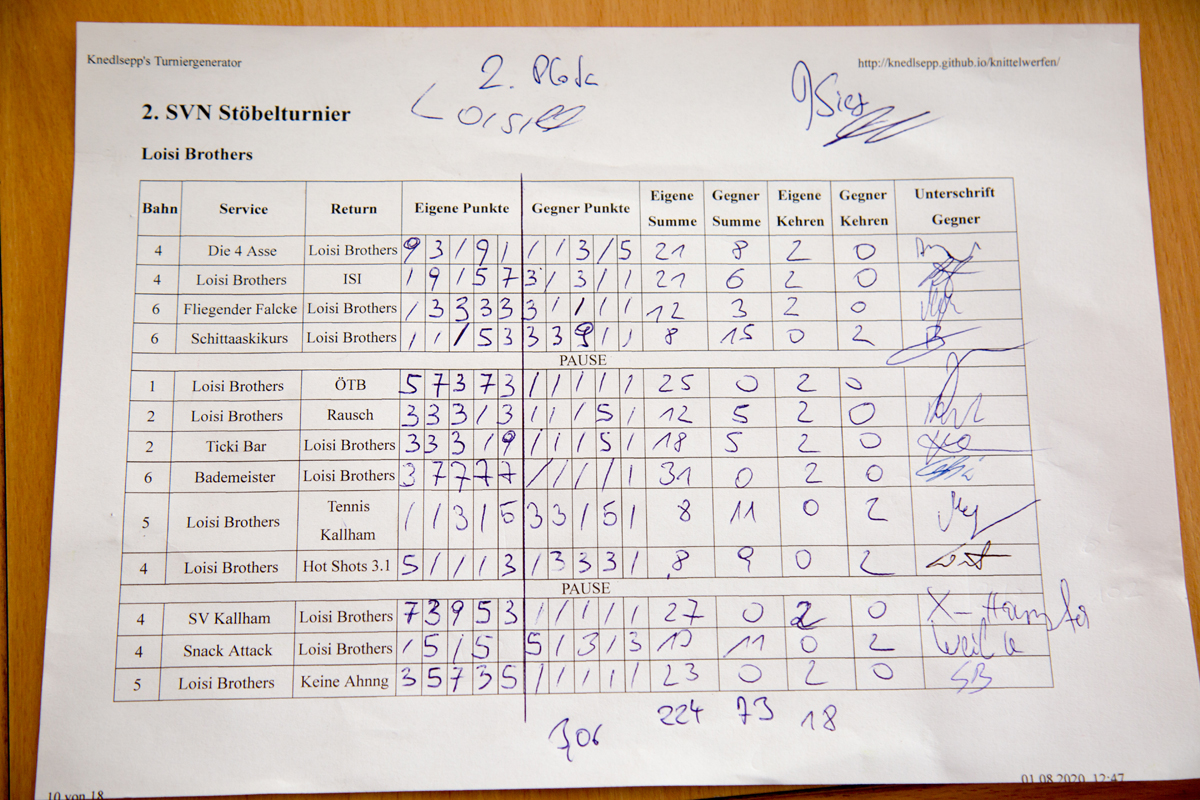 Knedlsepp's Turniergenerator http://knedlsepp.github.io/knittelwerfen/
2. Platz
2. SVN Stöbelturnier
Loisi Brothers
Bahn Service Return Eigene Punkte Gegner Punkte Eigene Summe Gegner Summe Eigene Kehren Gegner Kehren Unterschrift Gegner
4 Die 4 Asse Loisi Brothers 9 3 / 9 / / / 3 / 5 21 8 2 0
4 Loisi Brothers ISI 1 9 1 5 7 3 / 3 / 1 21 6 2 0
6 Fliegender Falcke Loisi Brothers / 3 3 3 3 3 1 / 1 1 12 3 2 0
6 Schittaaskikurs Loisi Brothers / / / 5 3 3 3 9 1 1 8 15 0 2
PAUSE
1 Loisi Brothers ÖTB 5 7 3 7 3 / / / / / 25 0 2 0
2 Loisi Brothers Rausch 3 3 3 / 3 / / / 5 / 12 5 2 0
2 Ticki Bar Loisi Brothers 3 3 3 / 9 / / / 5 1 18 5 2 0
6 Bademeister Loisi Brothers 3 7 7 7 7 / / / / / 31 0 2 0
5 Loisi Brothers Tennis Kallham / / 3 / 5 3 3 / 5 1 8 11 0 2
4 Loisi Brothers Hot Shots 3.1 5 / / / 3 / 3 3 3 1 8 9 0 2
PAUSE
4 SV Kallham Loisi Brothers 7 3 9 5 3 / / / / / 27 0 2 0
4 Snack Attack Loisi Brothers / 5 / 5 5 / 3 / 3 11 0 2
5 Loisi Brothers Keine Ahnng 3 5 7 3 5 / / / / / 23 0 2 0 SB
224 73 18
306
10 von 18 01.08.2020, 12:47